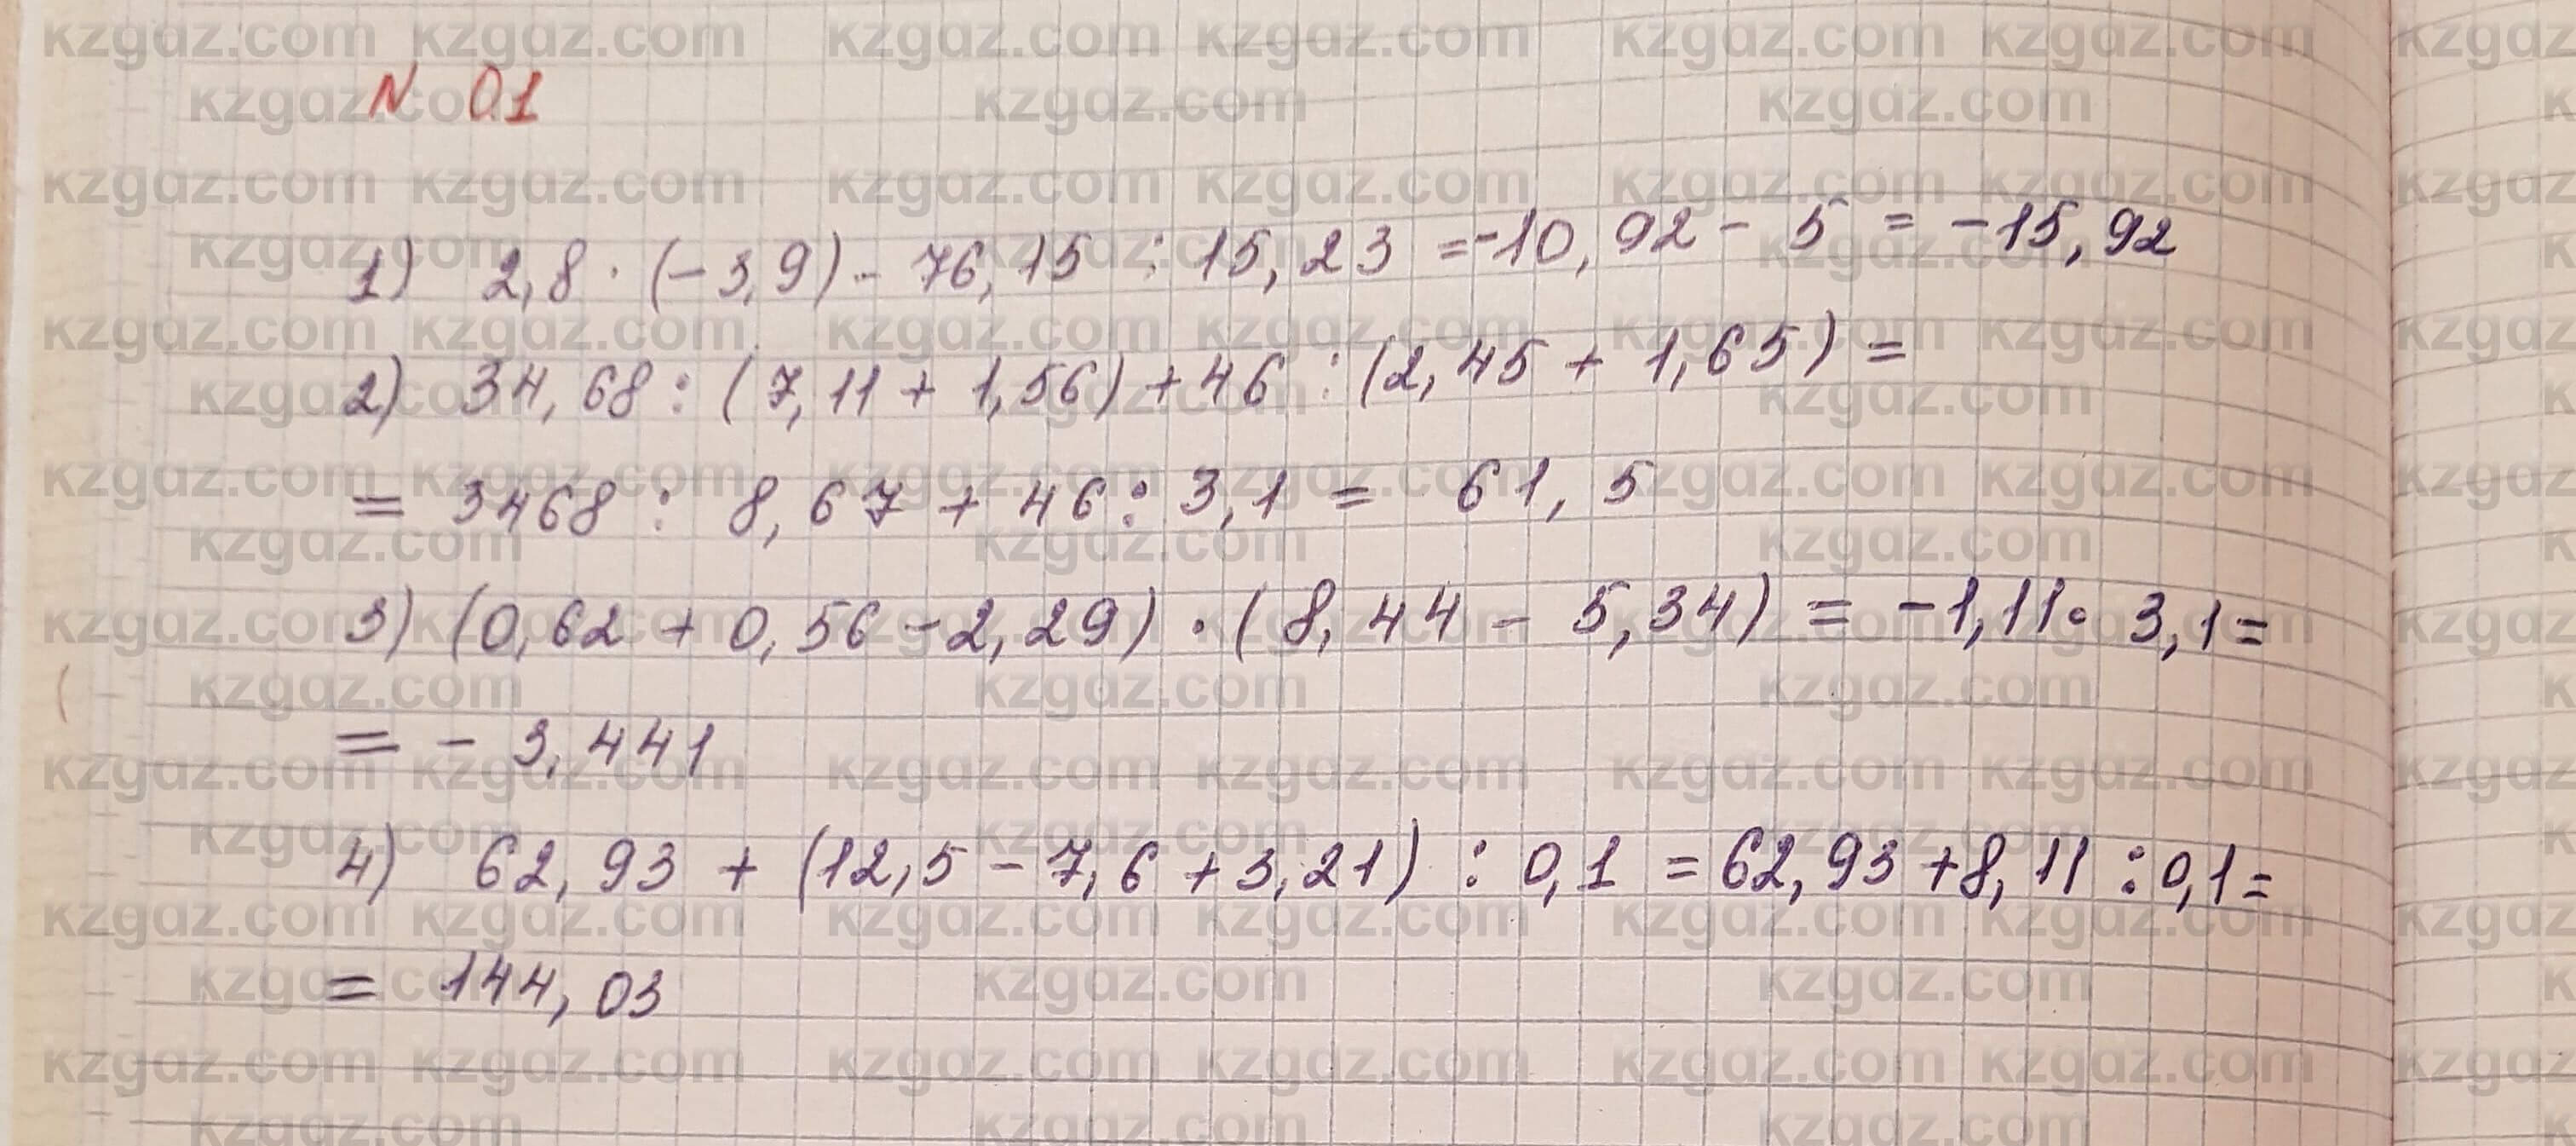 N 0.1
1) 2,8 · (-3,9) - 76,15 : 15,23 = -10,92 - 5 = -15,92
2) 34,68 : (7,11 + 1,56) + 46 : (2,45 + 1,65) =
= 3468 : 8,67 + 46 : 3,1 = 61,5
3) (0,62 + 0,56 - 2,29) · (8,44 - 5,34) = -1,11 · 3,1 =
= - 3,441
4) 62,93 + (12,5 - 7,6 + 3,21) : 0,1 = 62,93 + 8,11 : 0,1 =
= 144,03
kzgdz.com